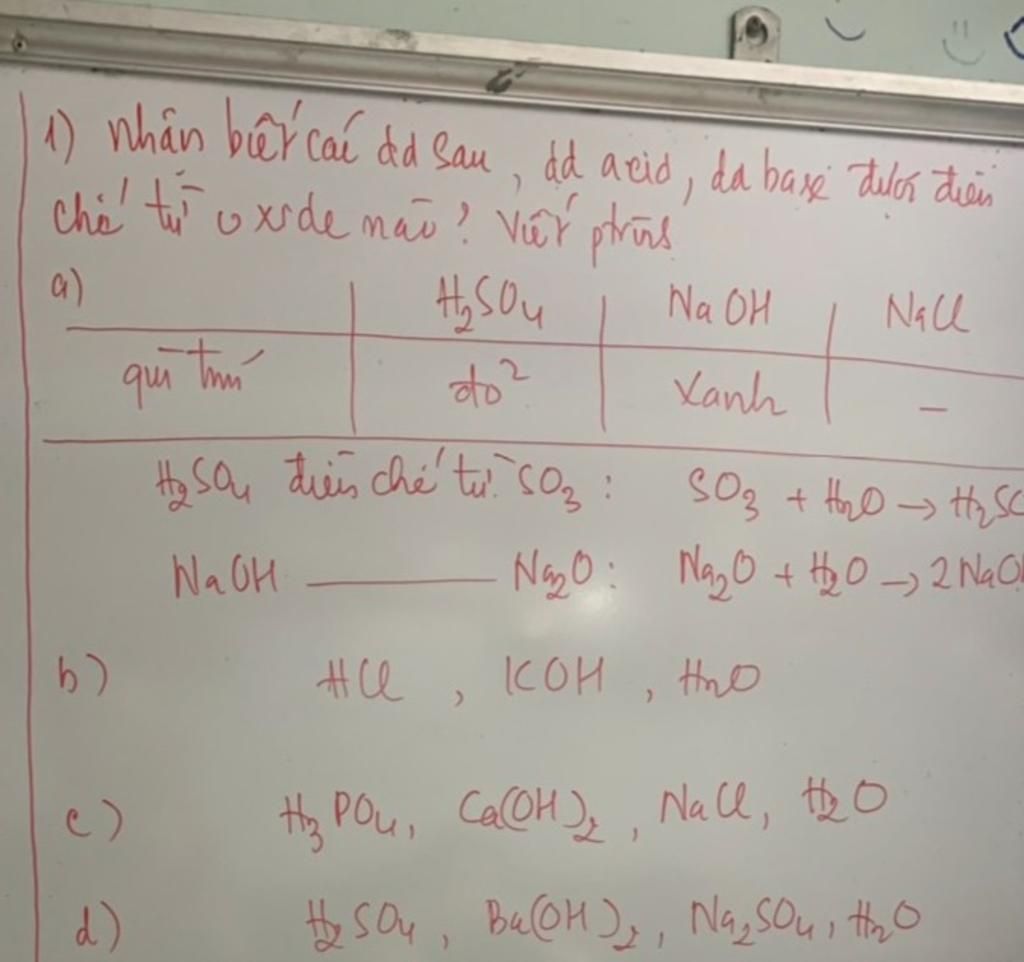 1) Nhận biết các dd sau, dd acid, dd base được điều
chế từ oxide nào? Viết ptrình
a) H₂SO₄ NaOH NaCl
quì tím đỏ xanh –
H₂SO₄ điều chế từ SO₃ : SO₃ + H₂O → H₂SO
NaOH ——— Na₂O : Na₂O + H₂O → 2NaO
b) HCl , KOH , H₂O
c) H₃PO₄, Ca(OH)₂, NaCl, H₂O
d) H₂SO₄, Ba(OH)₂, Na₂SO₄, H₂O